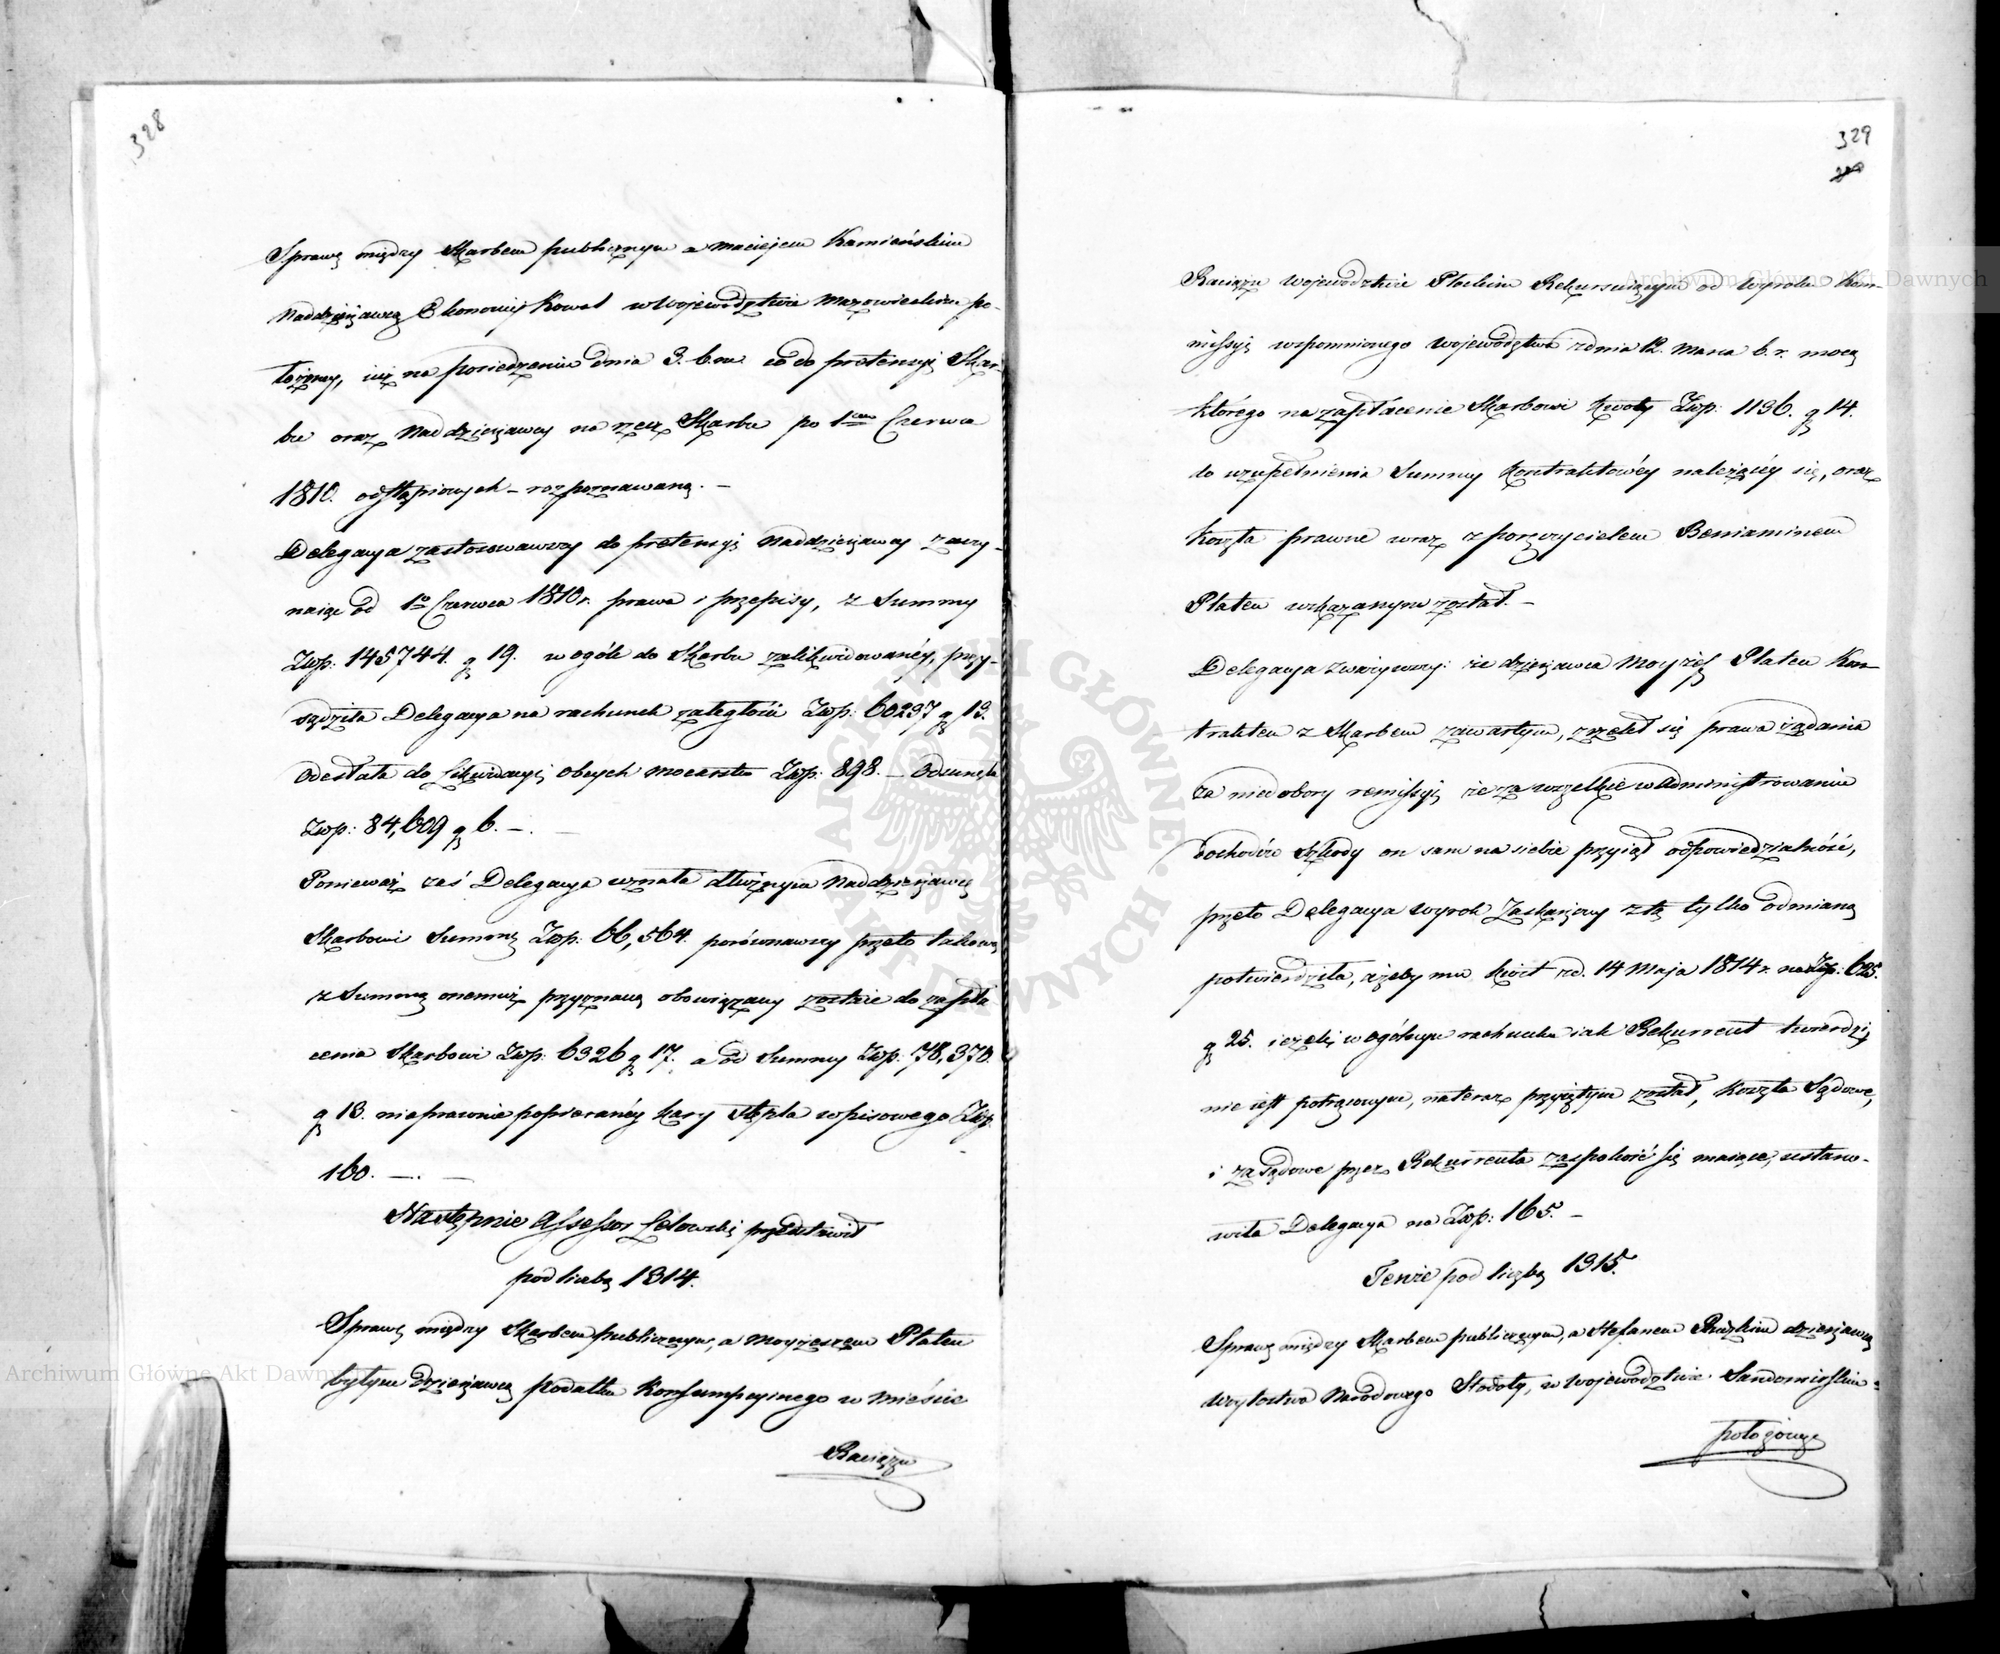 328
Sprawę między Skarbem publicznym a Maciejem Kamieńskim
Naddzierżawcą Ekonomij Kowal w Województwie Mazowieckim po-
łożonej, iuż na posiedzeniu dnia 3. b. m. co do pretensyi Skar-
bu oraz Naddzierżawcy na rzecz Skarbu po 1 Czerwca
1810. odstąpionych – rozpoznawaną. –
Delegacya zastosowawszy do pretensyi Naddzierżawcy zaczy-
naiąc od 1º Czerwca 1810 r. prawa i przepisy, z Summy
Złp: 145744. g 19. w ogóle do Skarbu zalikwidowanéy, przy-
sądziła Delegacya na rachunek zaległości Złp: 60237 g 13.
Odesłała do Likwidacyi obcych mocarstw Złp: 898. – Odsunęła
Złp: 84,609 g 6. –.
Ponieważ zaś Delegacya uznała dłużnym Naddzierżawcę
Skarbowi Summę Złp: 66,564. porównawszy przeto takową
z Summą onemuż przyznaną obowiązany zostaie do zapła
cenia Skarbowi Złp: 6326 g 17. a od Summy Złp: 78,370.
g 13. nieprawnie popieranéy kary stępla wpisowego Złp.
160. –. –
Następnie Assessor Lelowski przedstawił
pod liczbą 1314.
Sprawę między Skarbem publicznym, a Moyżeszem Platau
byłym dzierżawcą podatku Konsumpcyinego w mieście
Raciążu
329
Raciążu Województwie Płockim Rekursuiącym od wyroku Kom-
missyi wspomnionego Województwa z dnia 12. Marca b. r. mocą
którego na zapłacenie Skarbowi kwoty Złp: 1136. g 14.
do uzupełnienia Summy kontraktowéy należącéy się, oraz
koszta prawne wraz z poręczycielem Beniaminem
Platau wskazanym został. –
Delegacya zważywszy: że dzierżawca Moyżesz Platau Kon-
traktem z Skarbem zawartym, zrzekł się prawa żądania
za niedobory remissyi, że za wszelkie w Administrowaniu
dochodów szkody on sam na siebie przyiął odpowiedzialność,
przeto Delegacya wyrok zaskarżony z tą tylko odmianą
potwierdziła, ażeby mu kwit z d. 14 Maja 1814 r. na Złp: 625.
g 25. ieżeli w ogólnym rachunku iak Rekurrent twierdzi,
nie iest potrąconym, na teraz przyiętym został, koszta Sądowe,
i zasądowe przez Rekurrenta zaspokoić się maiące, ustano-
wiła Delegacya na Złp: 165. –
Tenże pod liczbą 1315.
Sprawę między Skarbem publicznym, a Stefanem dzierżawcą
Wóytostwa Narodowego Stodoły, w Województwie Sandomirskim
położonego
Archiwum Główne Akt Dawnych
Archiwum Główne Akt Dawnych
ARCHIWUM GŁÓWNE AKT DAWNYCH